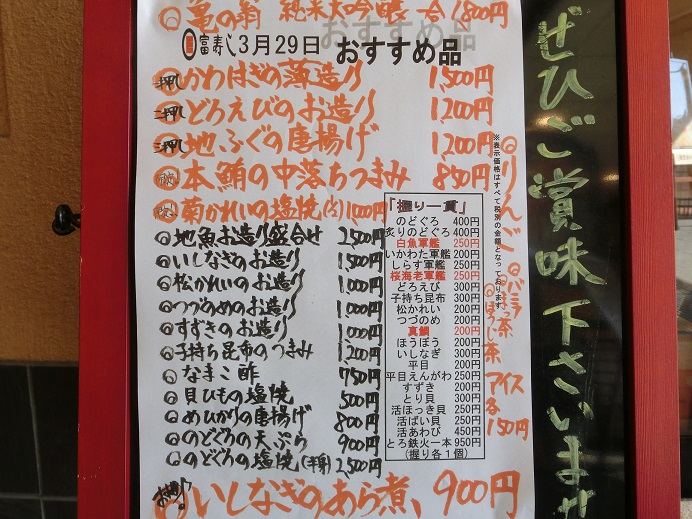 ◎亀の翁 純米大吟醸 一合1800円
富寿し3月29日 おすすめ品
一押し◎かわはぎの薄造り 1,500円
二押し◎どろえびのお造り 1,200円
三押し◎地ふぐの唐揚げ 1,200円
◎本鮪の中落ちつまみ 850円
◎菊かれいの塩焼(㐧) 1000円
◎地魚お造り盛合せ 2,500円
◎いしなぎのお造り 1,500円
◎松かれいのお造り 1,000円
◎つづのめのお造り 1,000円
◎すずきのお造り 1,000円
◎子持ち昆布のつまみ 1,200円
◎なまこ酢 750円
◎貝ひもの塩焼 500円
◎めひかりの唐揚げ 800円
◎のどぐろの天ぷら 900円
◎のどぐろの塩焼(半身) 2,500円
◎いしなぎのあら煮、900円
「握り一貫」
のどぐろ 400円
炙りのどぐろ 400円
白魚軍艦 250円
いかわた軍艦 200円
しらす軍艦 250円
桜海老軍艦 250円
どろえび 300円
子持ち昆布 300円
松かれい 200円
つづのめ 200円
真鯛 200円
ほうぼう 200円
いしなぎ 300円
平目 200円
平目えんがわ 250円
すずき 200円
とり貝 300円
活ほっき貝 250円
活ばい貝 250円
活あわび 450円
とろ鉄火一本 950円
(握り各1個)
※表示価格はすべて税別の金額となっております。
◎りんご
◎バニラ
◎ほうじ茶
アイス
各
150円
ぜひご賞味下さいませ